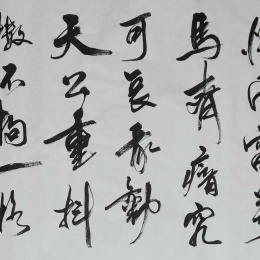 恃風雷萬
馬齊瘖究
可哀我勸
天公重抖
擻不拘一格